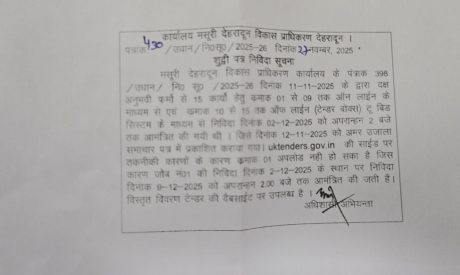 कार्यालय मसूरी देहरादून विकास प्राधिकरण देहरादून ।
पत्रांक 430 / उद्यान / नि0सू0 / 2025-26 दिनांक 27 नवम्बर, 2025
शुद्धी पत्र निविदा सूचना
मसूरी देहरादून विकास प्राधिकरण कार्यालय के पत्रांक 398
/ उद्यान / नि0 सू0 / 2025-26 दिनांक 11-11-2025 के द्वारा दक्ष
अनुभवी फर्मो से 15 कार्यो हेतु क्रमांक 01 से 09 तक ऑन लाईन के
माध्यम से एवं क्रमांक 10 से 15 तक ऑफ लाईन (टेन्डर बोक्स) टू बिड
सिस्टम के माध्यम से निविदा दिनांक 02-12-2025 को अपरान्ह्न 2 बजे
तक आमंत्रित की गयी थी । जिसे दिनांक 12-11-2025 को अमर उजाला
समाचार पत्र में प्रकाशित कराया गया। uktenders.gov.in की साईड पर
तकनीकी कारणों के कारण क्रमांक 01 अपलोड नही हो सका है जिस
कारण जॉब नं01 की निविदा दिनांक 2-12-2025 के स्थान पर निविदा
दिनांक 9-12-2025 को अपरान्ह्न 2.00 बजे तक आमंत्रित की जाती है।
विस्तृत विवरण टेन्डर की वैबसाईट पर उपलब्ध है ।
अधिशासी अभियन्ता